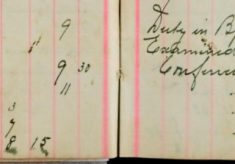 9
11
9 30
11
3
7
8 15
Duty in B
Examined
Conferen